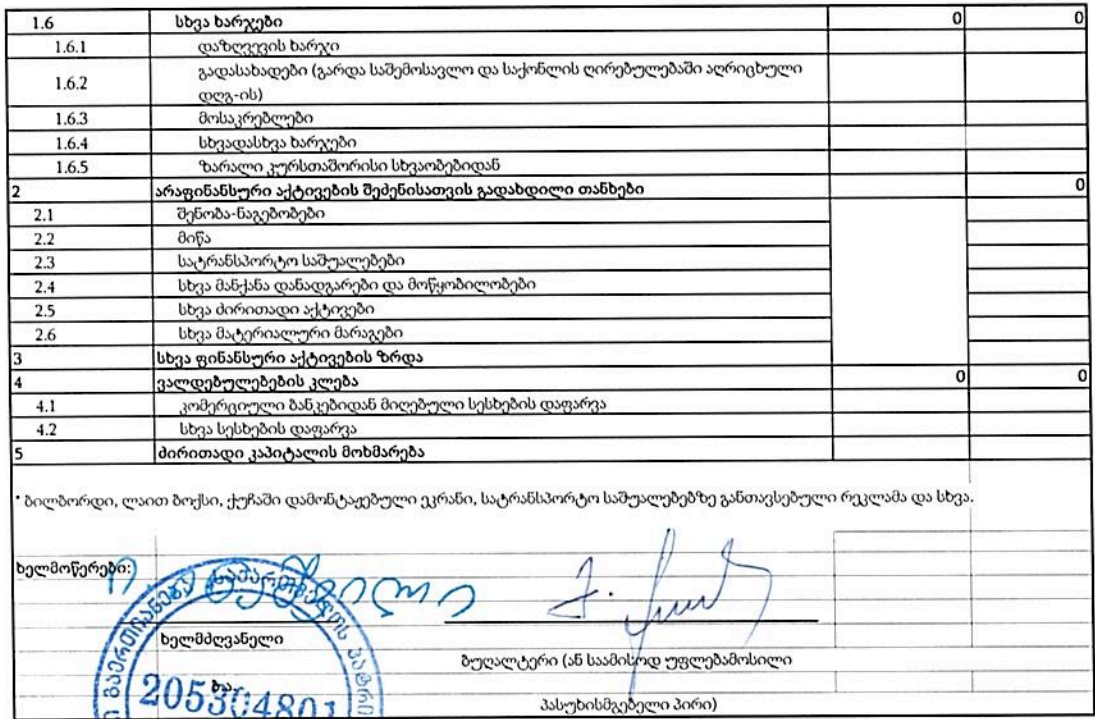 1.6 სხვა ხარჯები 0 0
1.6.1 დაზღვევის ხარჯი
1.6.2 გადასახადები (გარდა საშემოსავლო და საქონლის ღირებულებაში აღრიცხული
დღგ-ის)
1.6.3 მოსაკრებლები
1.6.4 სხვადასხვა ხარჯები
1.6.5 ზარალი კურსთაშორისი სხვაობებიდან
2 არაფინანსური აქტივების შეძენისათვის გადახდილი თანხები 0
2.1 შენობა-ნაგებობები
2.2 მიწა
2.3 სატრანსპორტო საშუალებები
2.4 სხვა მანქანა დანადგარები და მოწყობილობები
2.5 სხვა ძირითადი აქტივები
2.6 სხვა მატერიალური მარაგები
3 სხვა ფინანსური აქტივების ზრდა
4 ვალდებულებების კლება 0 0
4.1 კომერციული ბანკებიდან მიღებული სესხების დაფარვა
4.2 სხვა სესხების დაფარვა
5 ძირითადი კაპიტალის მოხმარება
* ბილბორდი, ლაით ბოქსი, ქუჩაში დამონტაჟებული ეკრანი, სატრანსპორტო საშუალებებზე განთავსებული რეკლამა და სხვა.
ხელმოწერები:
ხელმძღვანელი
ბუღალტერი (ან საამისოდ უფლებამოსილი
პასუხისმგებელი პირი)
ბ.ა.
205304801